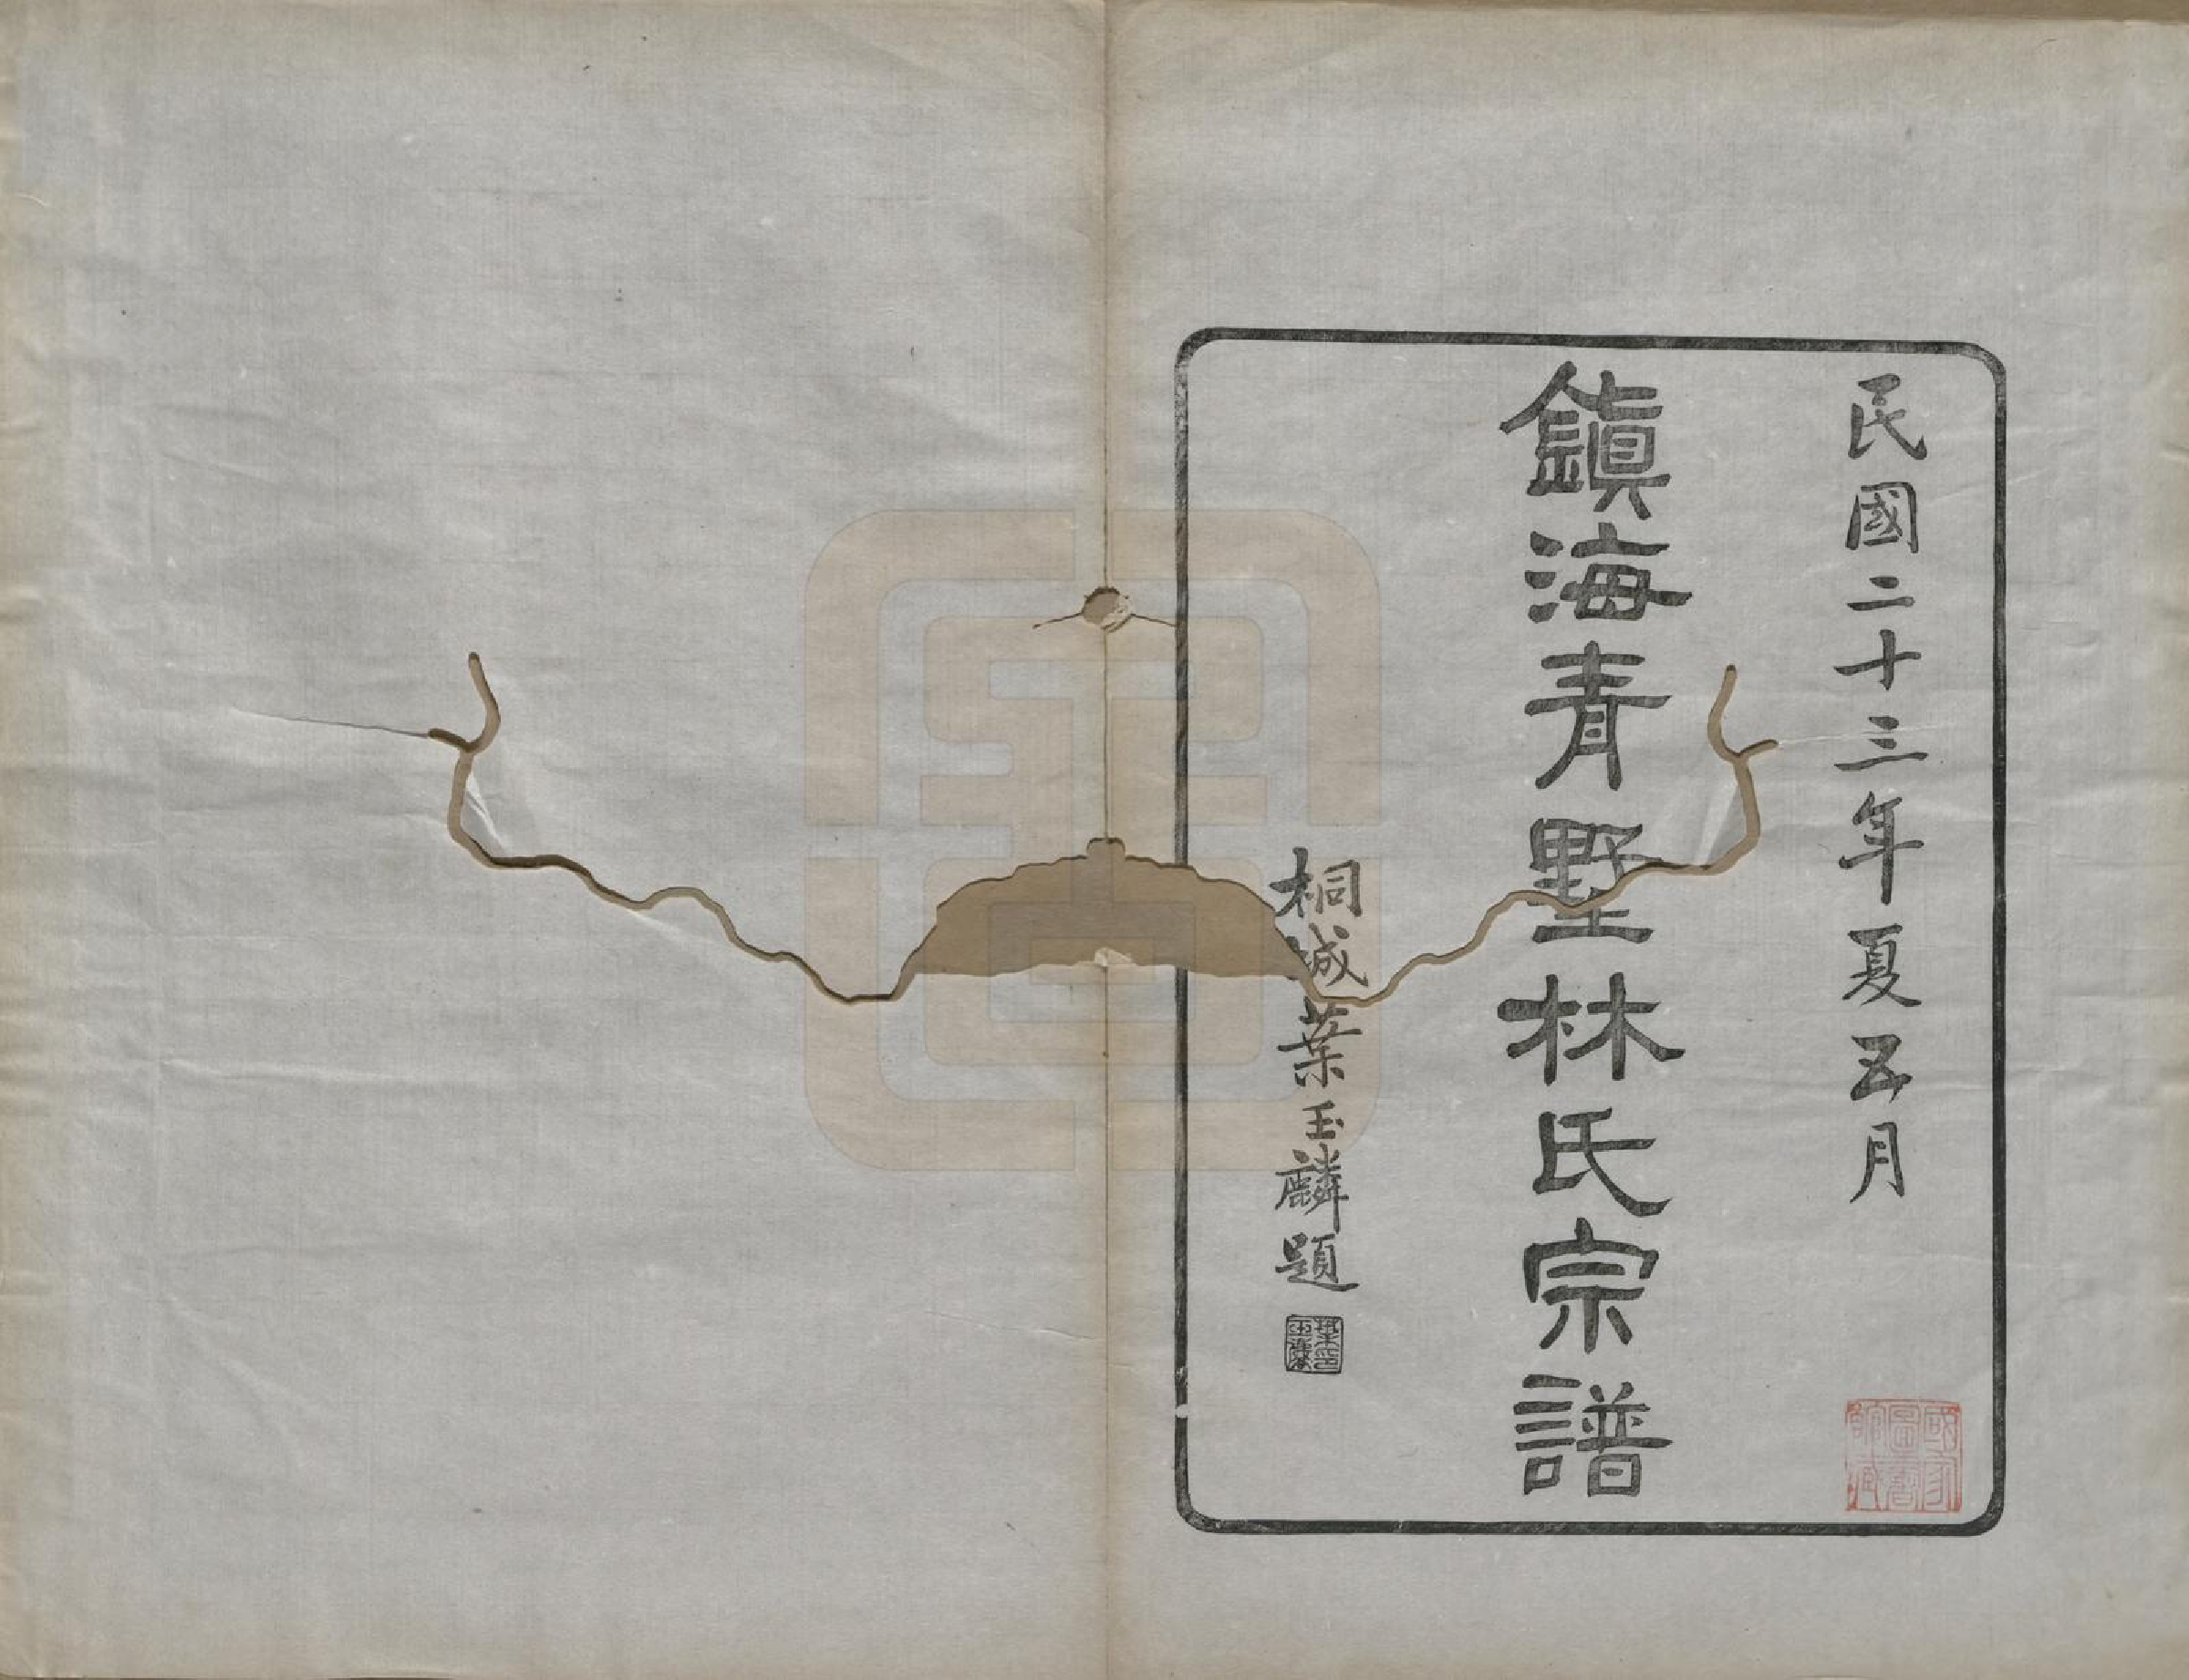 民國二十三年夏五月
鎮海青墅林氏宗譜
桐城葉玉麟題
葉印玉麟
國家圖書館藏